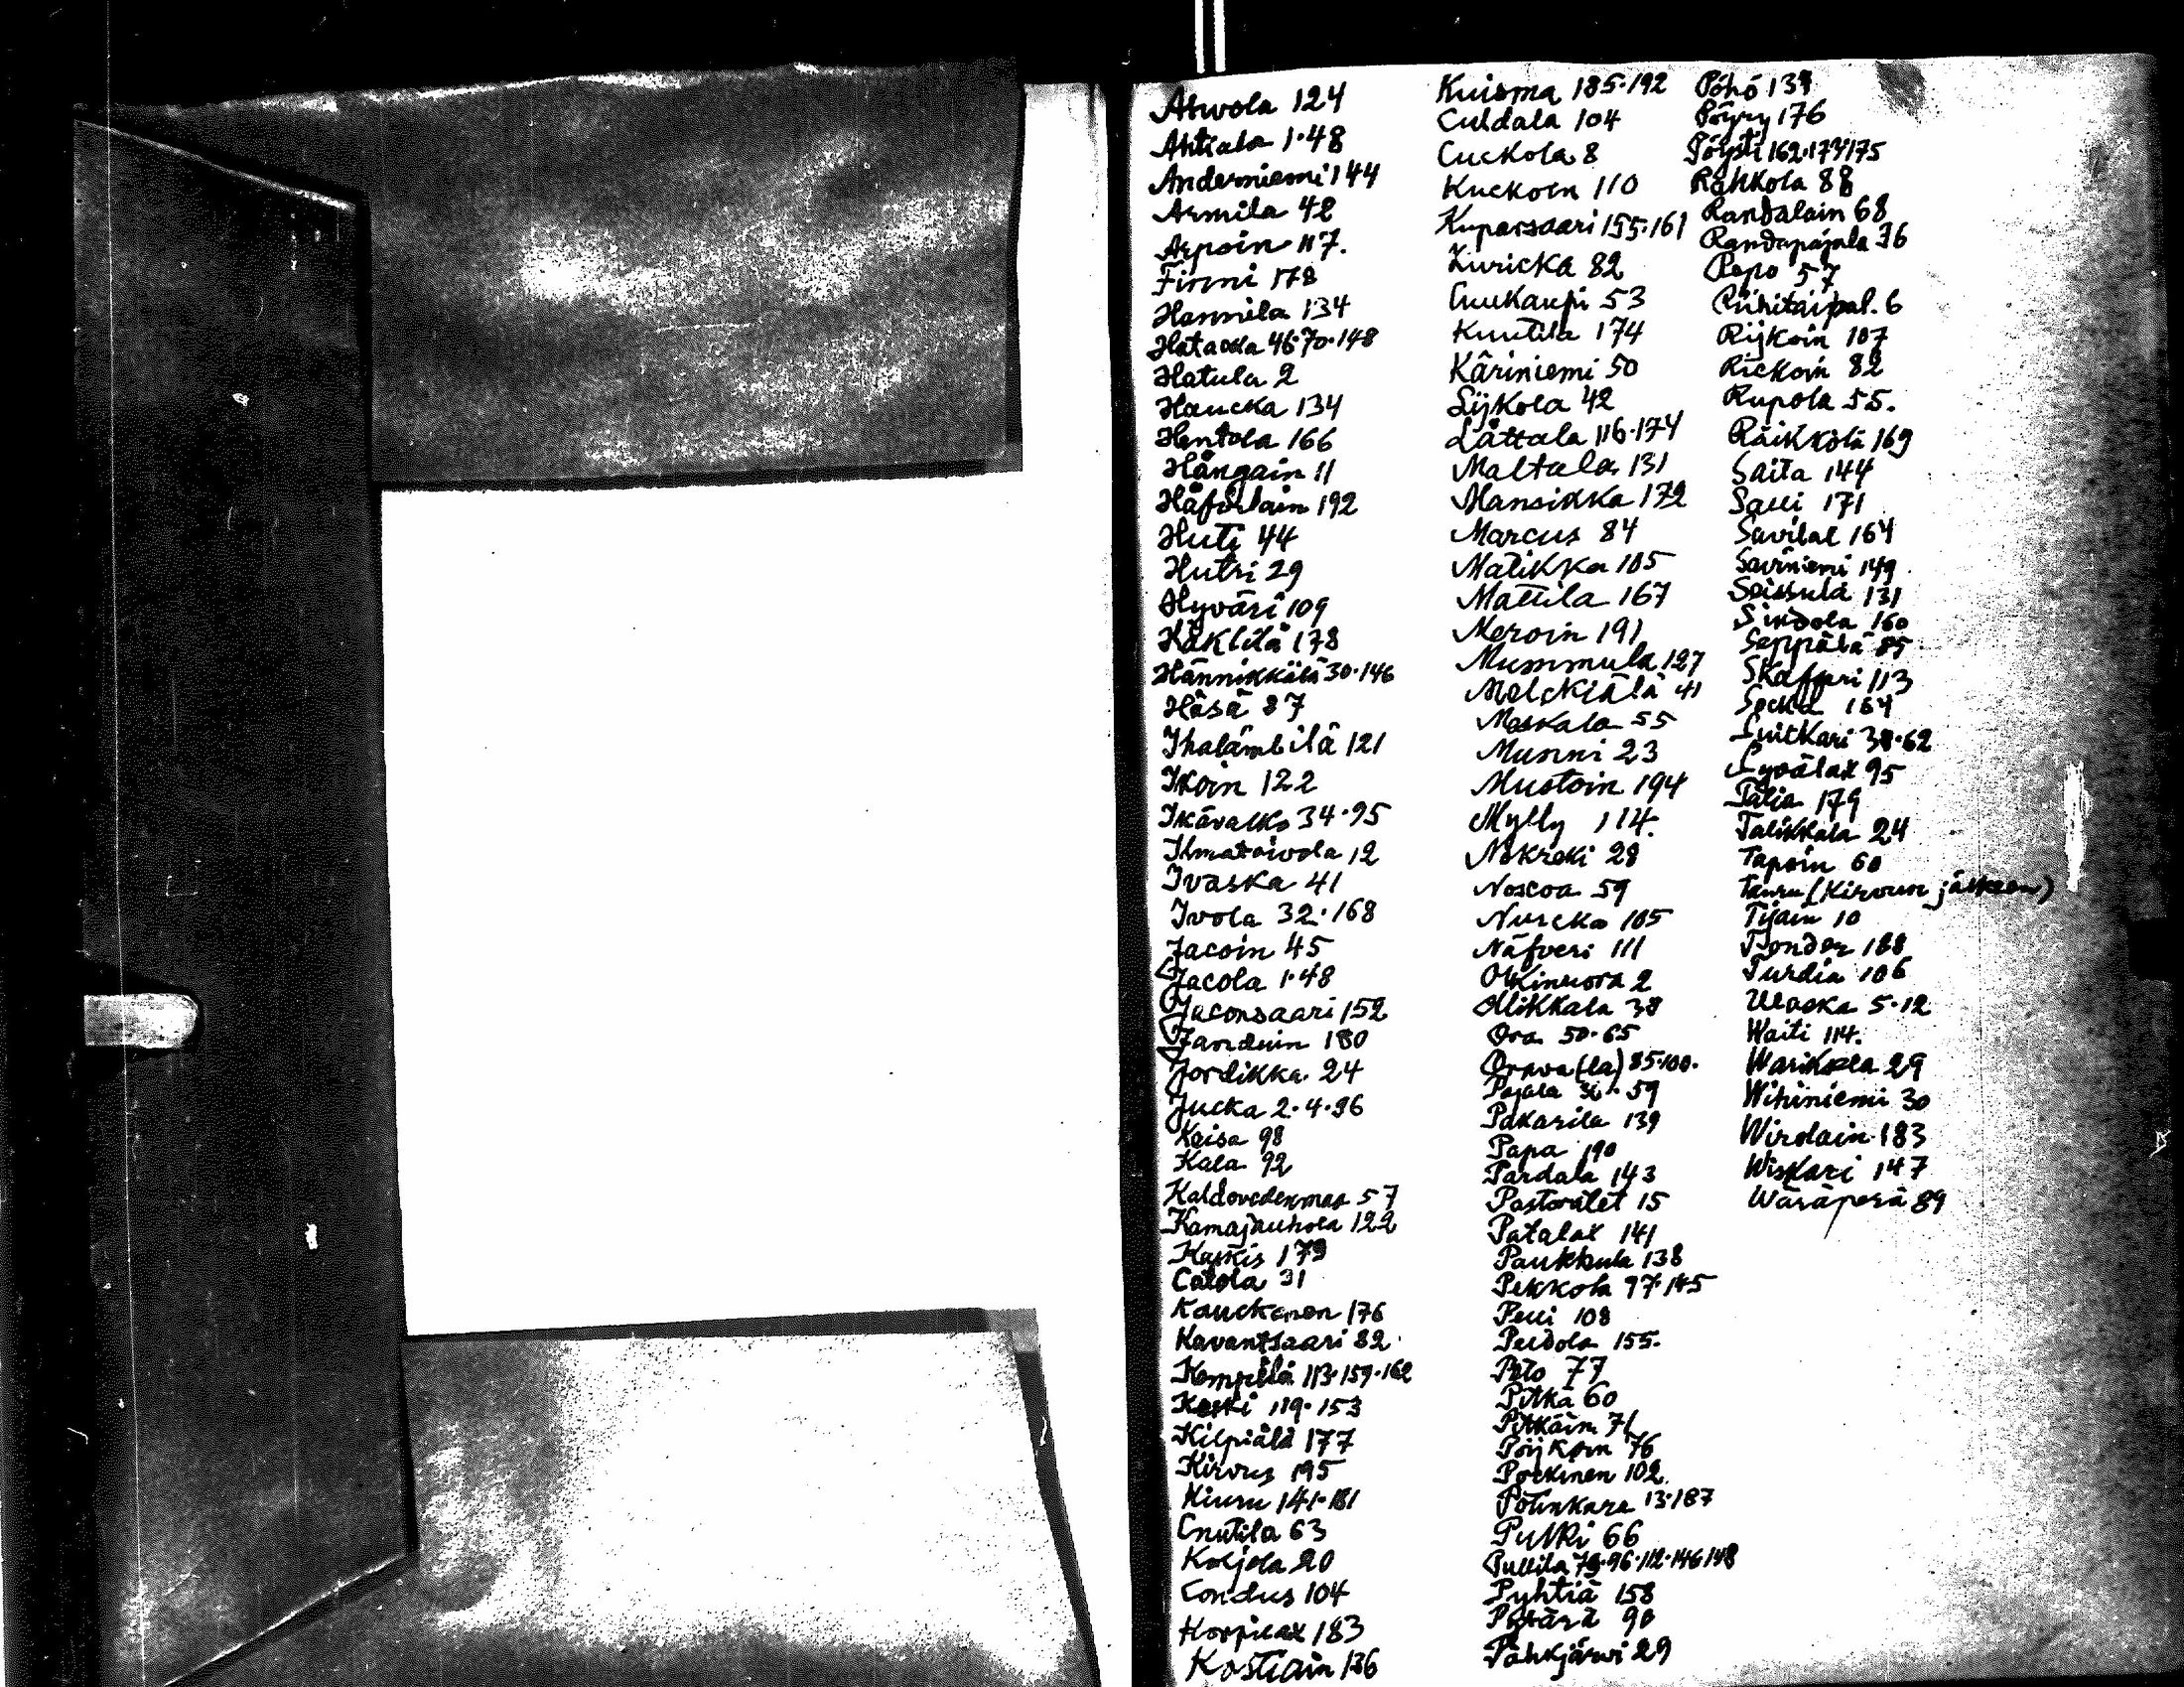 Ahvola 124
Ahtiala 1·48
Anderniemi 144
Armila 42
Arpoin 117.
Finni 178
Hannila 134
Hatacka 46·70·148
Hatula 2
Haucka 134
Hentola 166
Hångain 11
192
Huti 44
Hutri 29
Hyväri 109
Häklilä 178
Hännikkälä 30·146
Häsä 87
Ihalämbilä 121
Ikoin 122
Ikävalko 34·95
Ilmatoivola 12
Ivaska 41
Ivola 32·168
Jacoin 45
Jacola 1·48
Jaconsaari 152
Jarduin 180
Jordikka 24
Jucka 2·4·96
Kaisa 98
Kala 92
57
Kamajauhola 122
Kaskis 179
Catola 31
Kauckanen 176
Kavantsaari 82
Kempilä 113·159·162
Keski 119·153
Kilpiälä 177
Kirvus 195
Kiuru 141·181
Cnutila 63
Koljola 20
Condus 104
Korpilax 183
Kostiain 136
Kuisma 185·192
Culdala 104
Cuckola 8
Kuckoin 110
Kuparsaari 155·161
Kuricka 82
Cuukaupi 53
Kuutila 174
Käriniemi 50
Lijkola 42
Lättälä 116·174
Maltala 131
Mansikka 172
Marcus 84
Matikka 105
Mattila 167
Meroin 191
Mummula 127
Melckiälä 41
Moskala 55
Munni 23
Mustoin 194
Mylly 114.
Nokreki 28
Noscoa 59
Nurcka 105
Näfveri 111
Olkinuora 2
Ollikkala 38
Ora 50·65
Orava(la) 85·100.
Pajala 36·59
Pakarila 139
Papa 190
Pardala 143
Pastorålet 15
Patalax 141
Paukkula 138
Pekkola 97·145
Pelli 108
Perdola 155.
Pelto 77
Pitkä 60
Pitkäin 71
Poijkoin 76
Pockinen 102
Potinkara 13·187
Pulkki 66
Pullila 79·96·112·146·148
Pyhtiä 158
90
Pähkjärwi 29
Pöhö 139
Pöyry 176
Pöysti 162·173·175
Rahkola 88
Randalain 68
Randapajala 36
Repo 57
Riihitaipal. 6
Rijkoin 107
Rickoin 82
Rupola 55.
Räikkölä 169
Saita 144
Salli 171
Savilax 164
Saviniemi 149
Seissula 131
Sirdola 160
Seppälä 85
Skaffari 113
Socka 164
Suitkari 38·62
Syväläx 95
Talia 179
Talikkala 24
Tapoin 60
Tauru (Kirvun jälkeen)
Tijain 10
Tonder 188
Turdia 106
Ulaska 5·12
Waiti 114.
Warikkola 29
Wihiniemi 30
Wirolain 183
Wiskari 147
Wäräperä 89